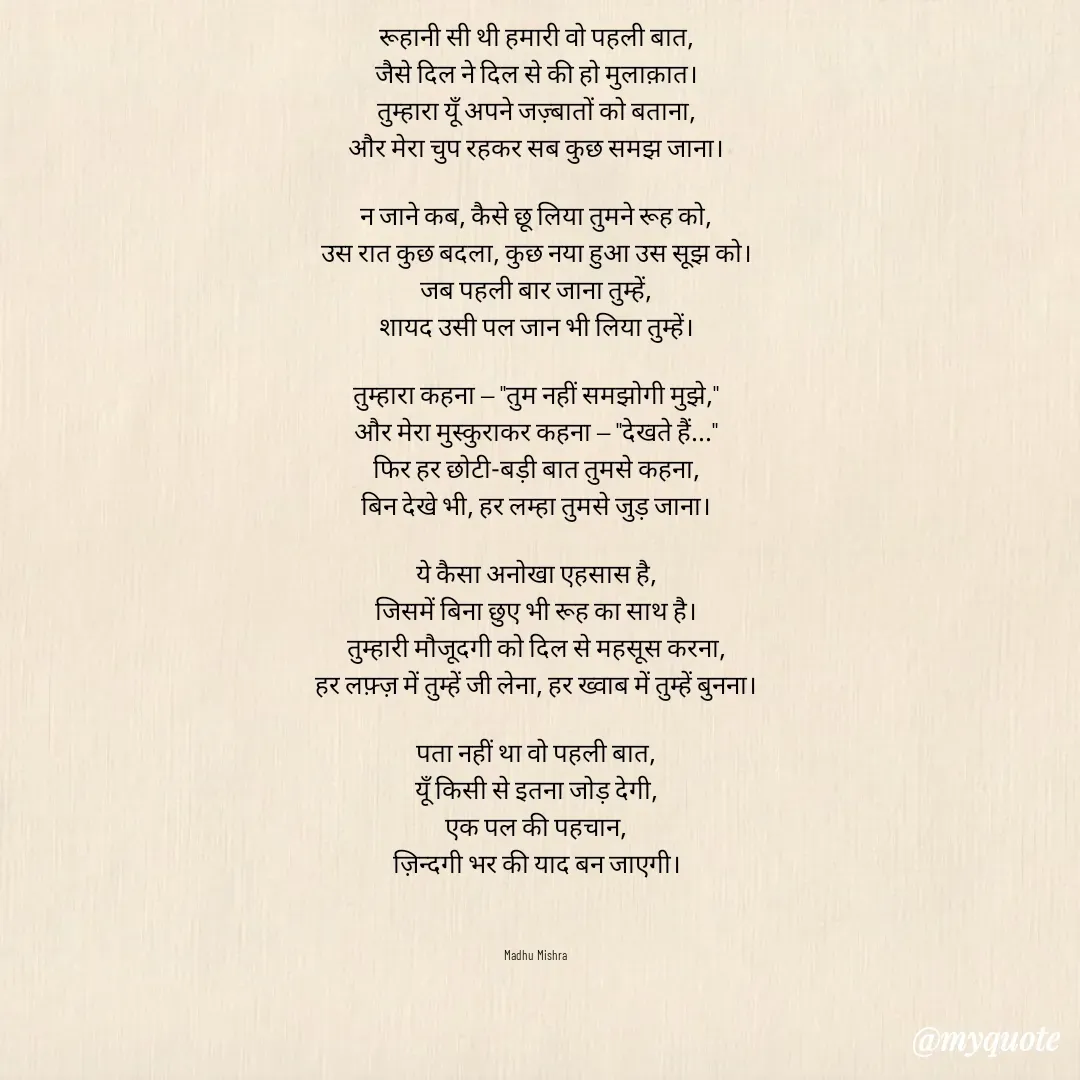 रूहानी सी थी हमारी वो पहली बात,
जैसे दिल ने दिल से की हो मुलाक़ात।
तुम्हारा यूँ अपने जज़्बातों को बताना,
और मेरा चुप रहकर सब कुछ समझ जाना।
न जाने कब, कैसे छू लिया तुमने रूह को,
उस रात कुछ बदला, कुछ नया हुआ उस सूझ को।
जब पहली बार जाना तुम्हें,
शायद उसी पल जान भी लिया तुम्हें।
तुम्हारा कहना – "तुम नहीं समझोगी मुझे,"
और मेरा मुस्कुराकर कहना – "देखते हैं..."
फिर हर छोटी-बड़ी बात तुमसे कहना,
बिन देखे भी, हर लम्हा तुमसे जुड़ जाना।
ये कैसा अनोखा एहसास है,
जिसमें बिना छुए भी रूह का साथ है।
तुम्हारी मौजूदगी को दिल से महसूस करना,
हर लफ़्ज़ में तुम्हें जी लेना, हर ख्वाब में तुम्हें बुनना।
पता नहीं था वो पहली बात,
यूँ किसी से इतना जोड़ देगी,
एक पल की पहचान,
ज़िन्दगी भर की याद बन जाएगी।
Madhu Mishra
@myquote